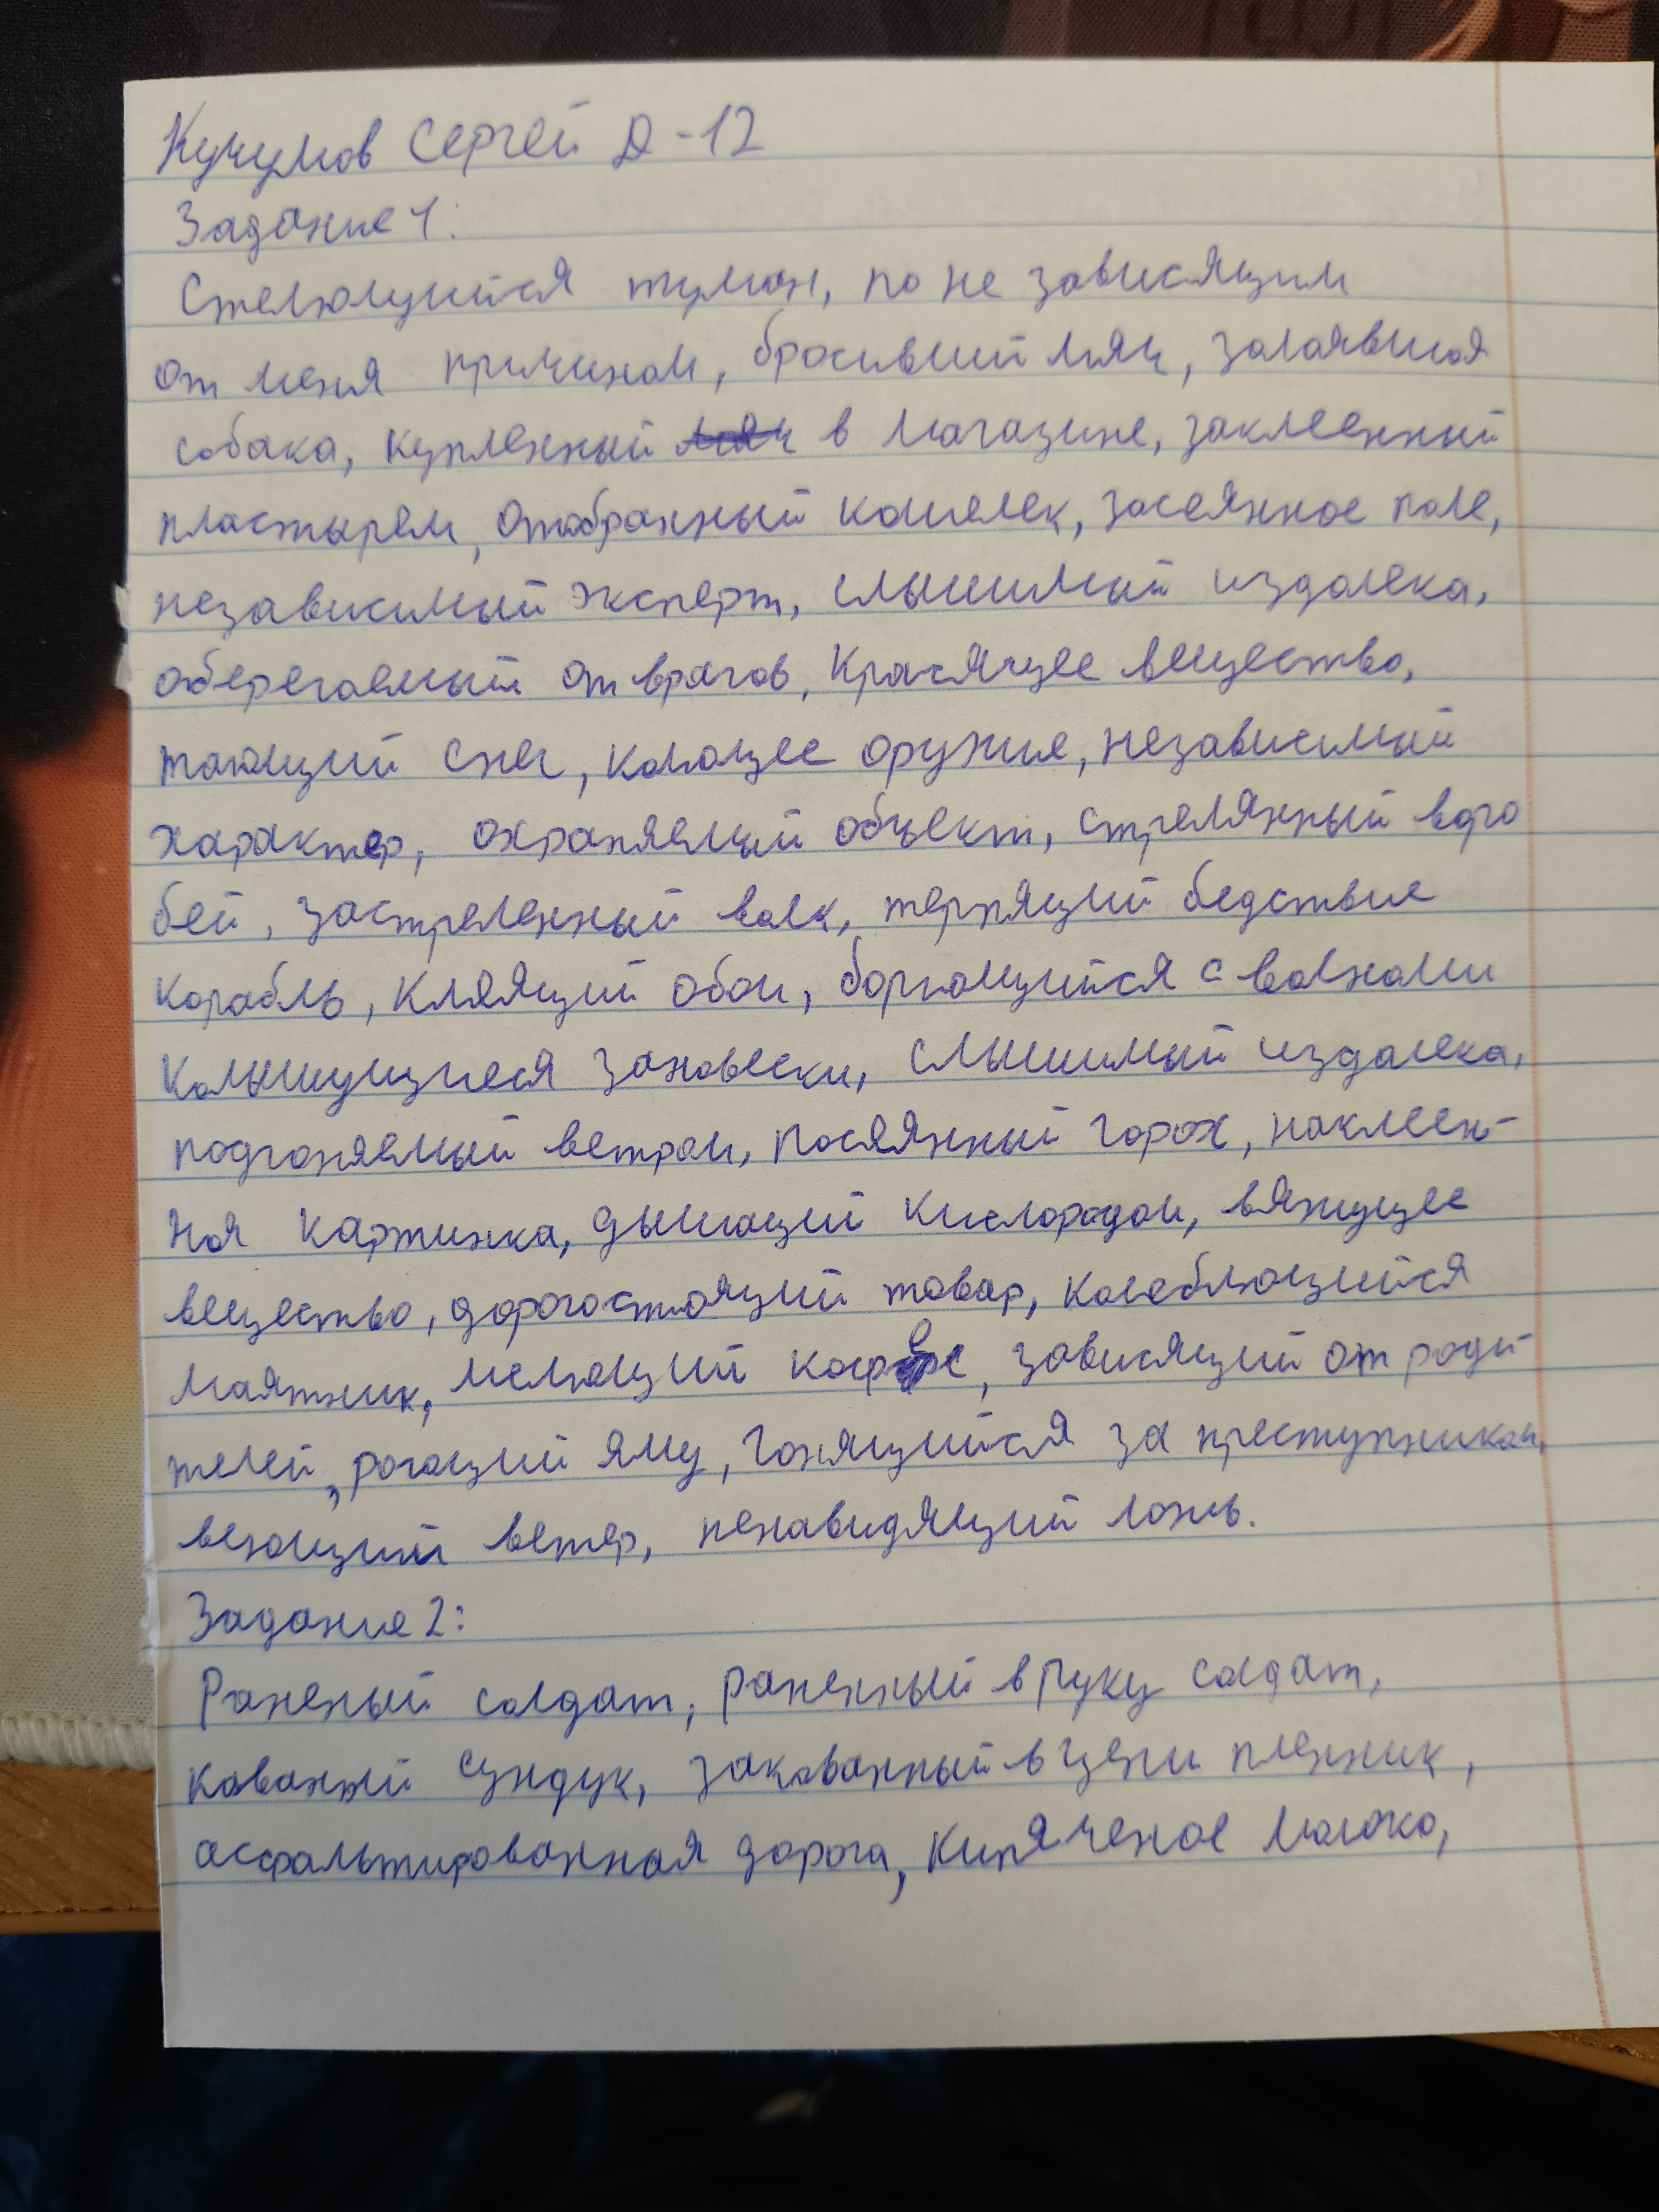 Кучумов Сергей Д-12
Задание 1:
Стелющийся туман, по не зависящим
от меня причинам, бросивший мяч, залаявшая
собака, купленный в магазине, заклеенный
пластырем, отобранный кошелек, засеянное поле,
независимый эксперт, слышимый издалека,
оберегаемый от врагов, красящее вещество,
тающий снег, колющее оружие, независимый
характер, охраняемый объект, стрелянный воро
бей, застреленный волк, терпящий бедствие
корабль, клеящий обои, борющийся с волнами
колышущиеся занавески, слышимый издалека,
подгоняемый ветром, посеянный горох, наклеен-
ная картинка, дышащий кислородом, вяжущее
вещество, дорогостоящий товар, колеблющийся
маятник, мелющий кофе, зависящий от роди-
телей, рогащий яму, гонящийся за преступником,
веющий ветер, ненавидящий ложь.
Задание 2:
Раненый солдат, раненный в руку солдат,
кованый сундук, закованный в цепи пленник,
асфальтированная дорога, кипяченое молоко,